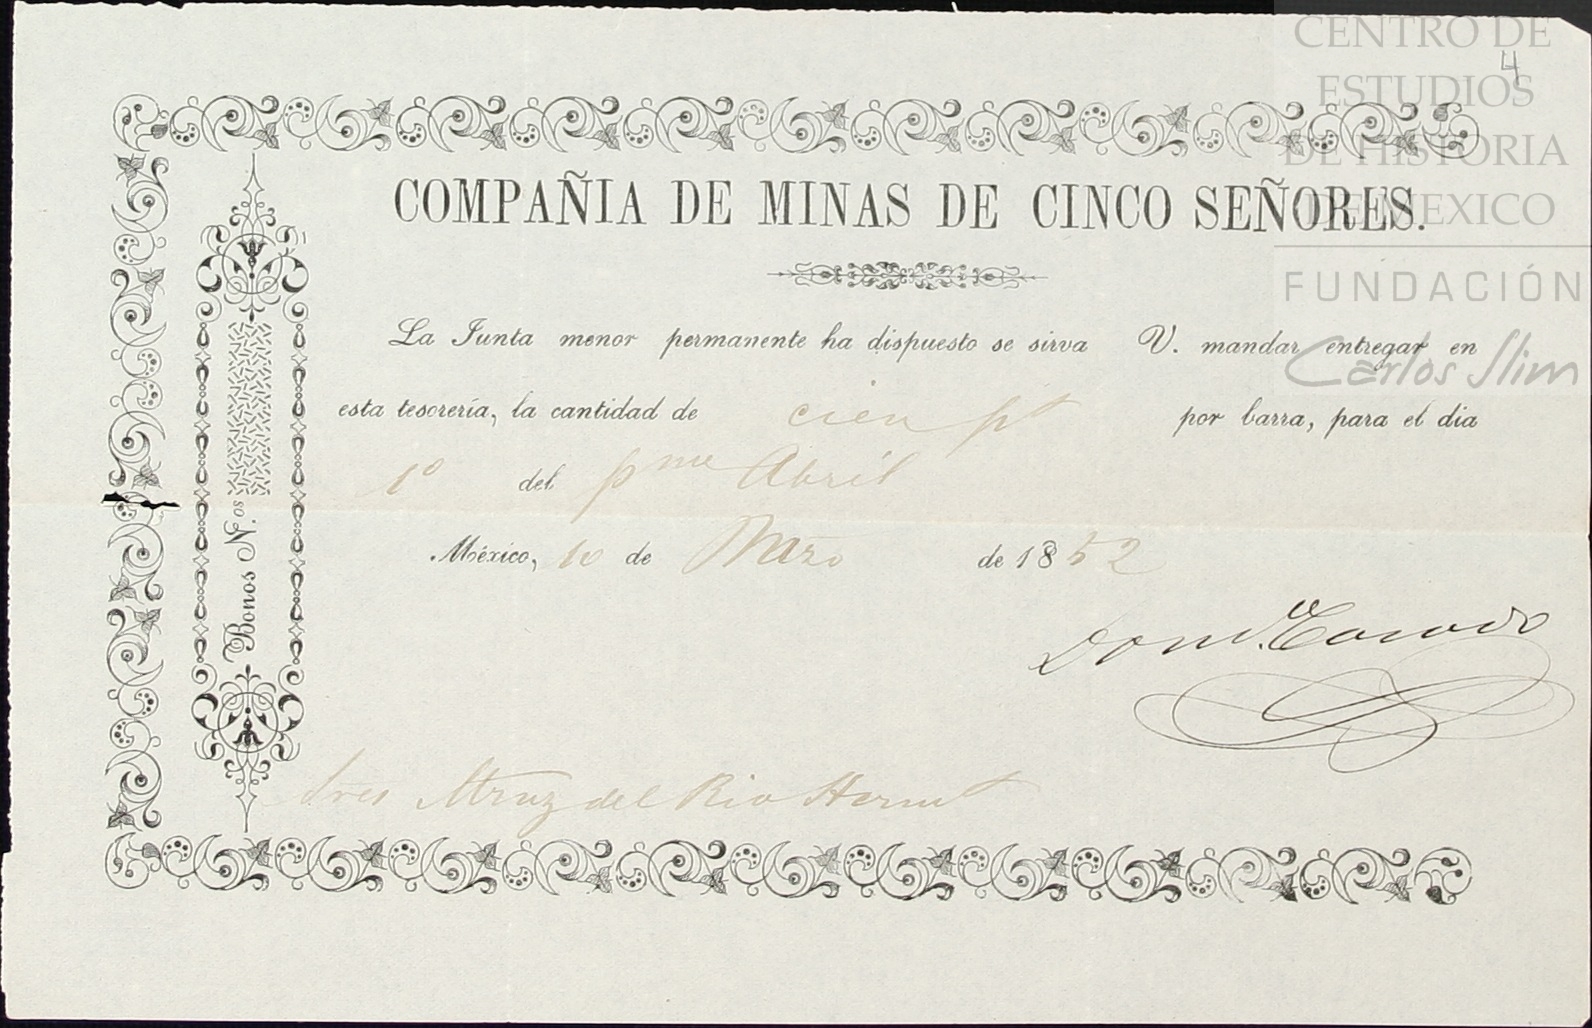 CENTRO DE
ESTUDIOS
DE HISTORIA
DE MEXICO
FUNDACIÓN
Carlos Slim
4
COMPAÑIA DE MINAS DE CINCO SEÑORES.
La Junta menor permanente ha dispuesto se sirva V. mandar entregar en
esta tesorería, la cantidad de cien ps por barra, para el dia
1o del pmo Abril
México, 10 de Marzo de 1852
Bonos N.os
del Rio